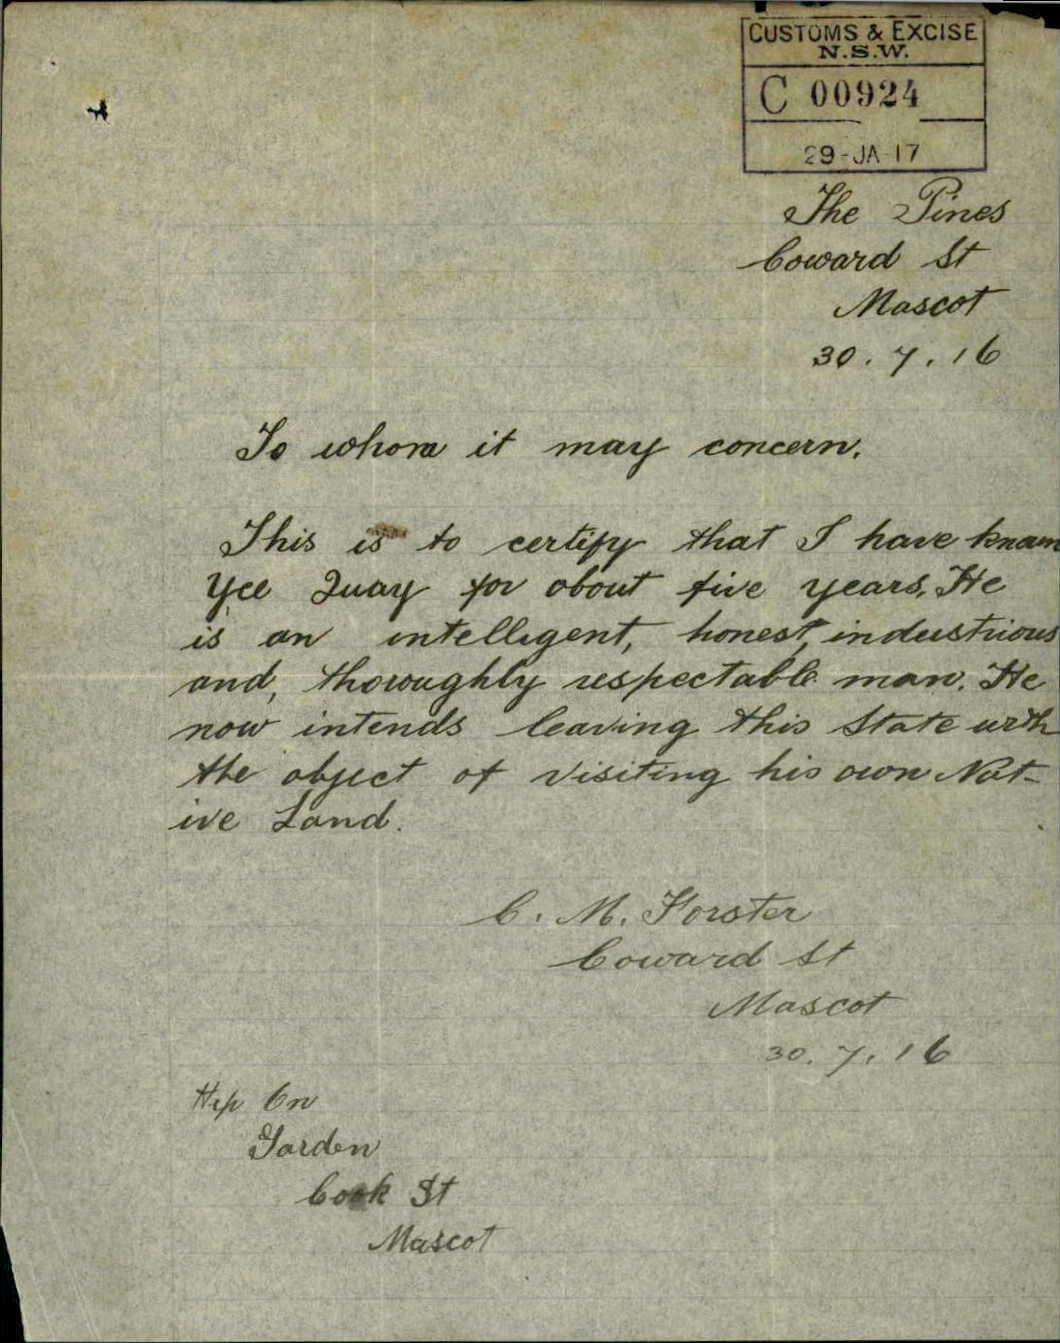 CUSTOMS & EXCISE
N.S.W.
C 00924
29-JA-17
The Pines
Coward St
Mascot
30.7.16
To whom it may concern.
This is to certify that I have known
Yee Quay for about five years. He
is an intelligent, honest, industrious
and, thoroughly respectable man. He
now intends leaving this State with
the object of visiting his own Nat-
ive Land.
C. M. Forster
Coward St
Mascot
30.7.16
Hip On
Garden
Cook St
Mascot